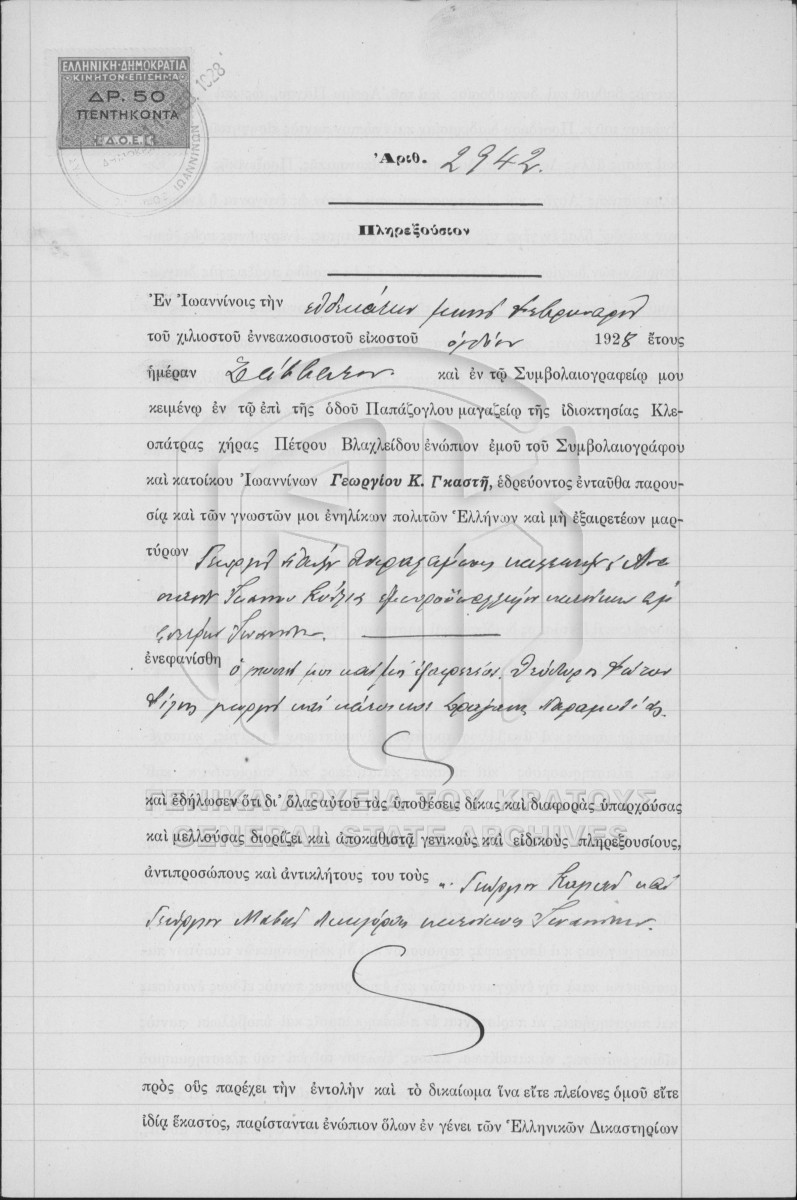 ΕΛΛΗΝΙΚΗ·ΔΗΜΟΚΡΑΤΙΑ
ΚΙΝΗΤΟΝ·ΕΠΙΣΗΜΑ
ΔΡ. 50
ΠΕΝΤΗΚΟΝΤΑ
Δ.Ο.Ε.
1928
ΙΩΑΝΝΙΝΩΝ
Ἀριθ. 2942.
Πληρεξούσιον
Ἐν Ἰωαννίνοις τὴν ἑνδεκάτην μηνὸς Φεβρουαρίου
τοῦ χιλιοστοῦ ἐννεακοσιοστοῦ εἰκοστοῦ ὀγδόου 1928 ἔτους
ἡμέραν Σάββατον καὶ ἐν τῷ Συμβολαιογραφείῳ μου
κειμένῳ ἐν τῷ ἐπὶ τῆς ὁδοῦ Παπάζογλου μαγαζείῳ τῆς ἰδιοκτησίας Κλε-
οπάτρας χήρας Πέτρου Βλαχλείδου ἐνώπιον ἐμοῦ τοῦ Συμβολαιογράφου
καὶ κατοίκου Ἰωαννίνων Γεωργίου Κ. Γκαστῆ, ἑδρεύοντος ἐνταῦθα παρου-
σίᾳ καὶ τῶν γνωστῶν μοι ἐνηλίκων πολιτῶν Ἑλλήνων καὶ μὴ ἐξαιρετέων μαρ-
τύρων Γεωργίου
Ἰωάννου κατοίκων ἀμ
φοτέρων Ἰωαννίνων.
ἐνεφανίσθη ὁ γνωστός μοι καὶ μὴ ἐξαιρετέος Θεόδωρος Φώτου
κάτοικος Παραμυθιᾶς.
ΓΕΝΙΚΑ ΑΡΧΕΙΑ ΤΟΥ ΚΡΑΤΟΥΣ
GENERAL STATE ARCHIVES
καὶ ἐδήλωσεν ὅτι δι' ὅλας αὐτοῦ τὰς ὑποθέσεις δίκας καὶ διαφορὰς ὑπαρχούσας
καὶ μελλούσας διορίζει καὶ ἀποκαθιστᾷ γενικοὺς καὶ εἰδικοὺς πληρεξουσίους,
ἀντιπροσώπους καὶ ἀντικλήτους του τοὺς Γεώργιον καὶ
Γεώργιον δικηγόρους κατοίκους Ἰωαννίνων.
πρὸς οὓς παρέχει τὴν ἐντολὴν καὶ τὸ δικαίωμα ἵνα εἴτε πλείονες ὁμοῦ εἴτε
ἰδίᾳ ἕκαστος, παρίστανται ἐνώπιον ὅλων ἐν γένει τῶν Ἑλληνικῶν Δικαστηρίων